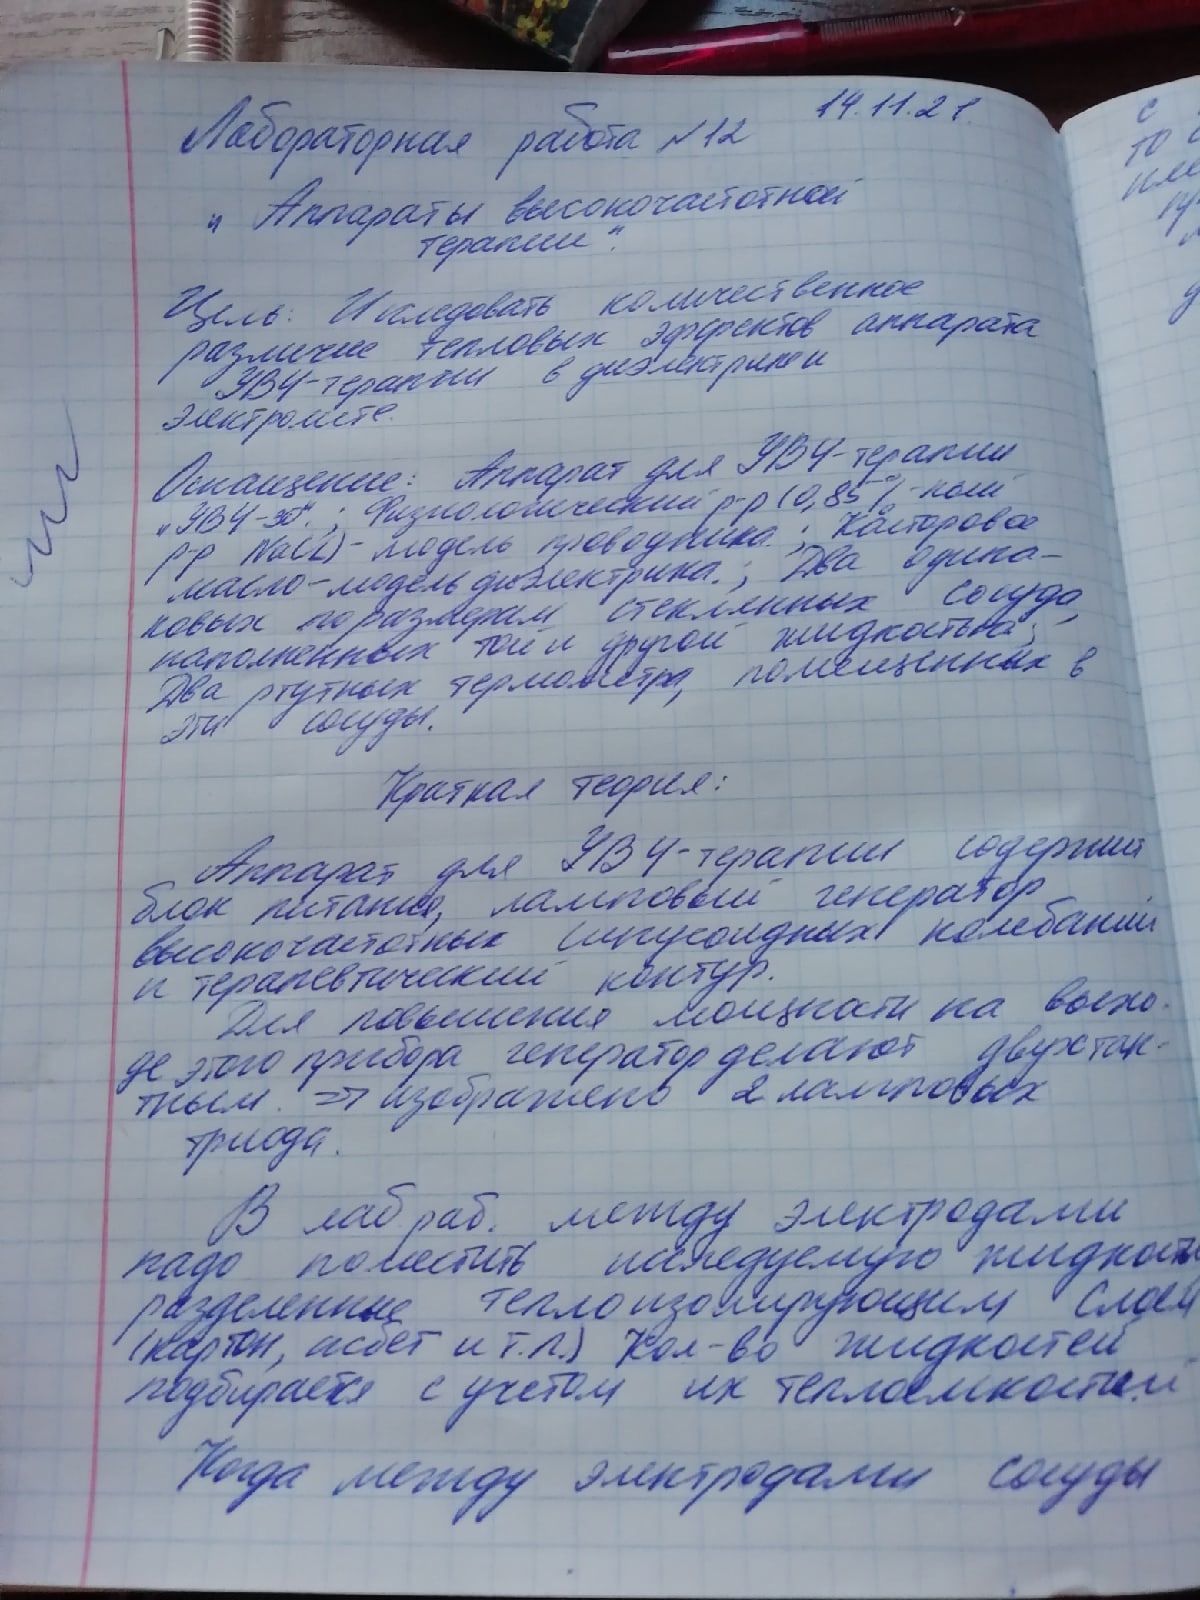 14.11.21.
Лабораторная работа №12
„Аппараты высокочастотной
терапии".
Цель: Исследовать количественное
различие тепловых эффектов аппарата
УВЧ-терапии в диэлектрике и
электролите.
Оснащение: Аппарат для УВЧ-терапии
„УВЧ-30".; Физиологический р-р (0,85%-ный
р-р NaCl)-модель проводника.; Касторовое
масло-модель диэлектрика.; Два одина-
ковых по размерам стеклянных сосуда,
наполненных той и другой жидкостью;
Два ртутных термометра, помещенных в
эти сосуды.
Краткая теория:
Аппарат для УВЧ-терапии содержит
блок питания, ламповый генератор
высокочастотных синусоидных колебаний
и терапевтический контур.
Для повышения мощности на выхо-
де этого прибора генератор делают двухтак-
тным. => изображено 2 ламповых
триода.
В лаб раб. между электродами
надо поместить исследуемую жидкость
разделенные теплоизолирующим слоем
(картон, асбет и т.п.) Кол-во жидкостей
подбирается с учетом их теплоемкостей
Когда между электродами сосуды
с
то